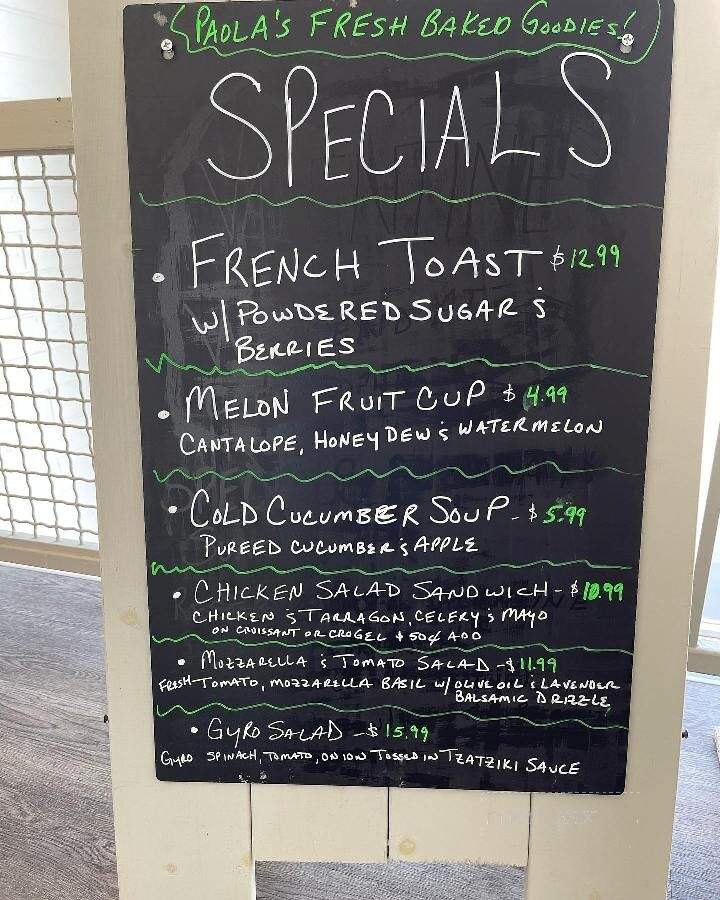 PAOLA'S FRESH BAKED GOODIES!
SPECIALS
• FRENCH TOAST $12.99
W/ POWDERED SUGAR &
BERRIES
• MELON FRUIT CUP $4.99
CANTALOPE, HONEYDEW & WATERMELON
• COLD CUCUMBER SOUP - $5.99
PUREED CUCUMBER & APPLE
• CHICKEN SALAD SANDWICH - $10.99
CHICKEN & TARRAGON, CELERY & MAYO
ON CRUISSANT OR CROGEL + 50¢ ADD
• MOZZARELLA & TOMATO SALAD - $11.99
FRESH TOMATO, MOZZARELLA BASIL W/ OLIVE OIL & LAVENDER
BALSAMIC DRIZZLE
• GYRO SALAD - $15.99
GYRO SPINACH, TOMATO, ONION TOSSED IN TZATZIKI SAUCE